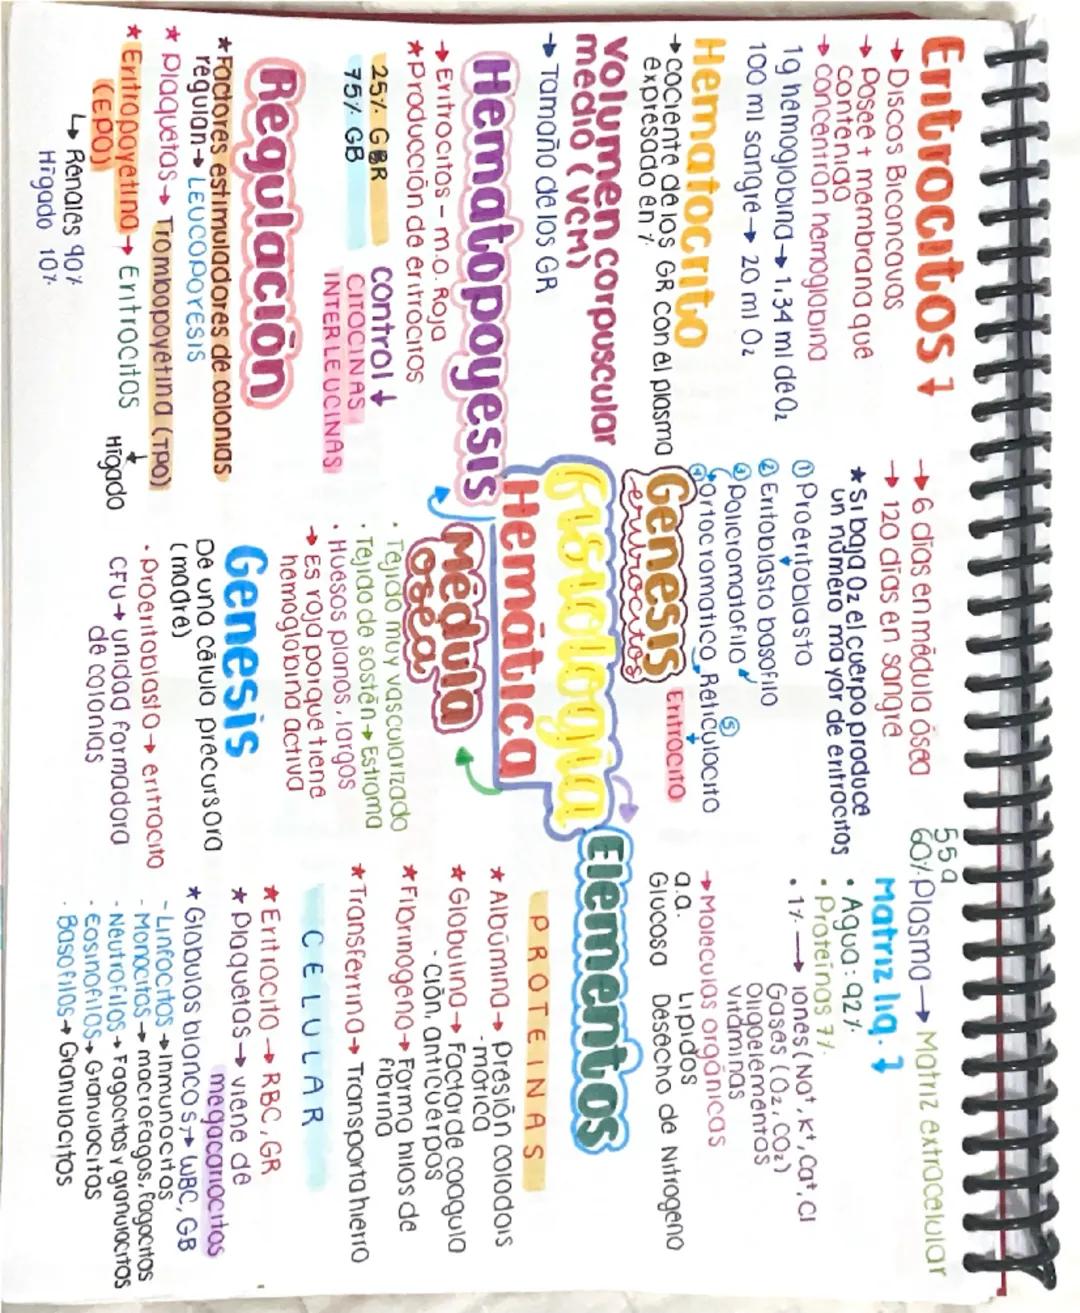 Eritrocitos ↓
→ Discos Bicóncavos
→ Posee + membrana que
contenido
→ concentran hemoglobina
1g hemoglobina → 1,34 ml de O2
100 ml sangre → 20 ml O2
Hematocrito
→ cociente de los GR con el plasma
expresado en %
Volumen corpuscular
medio (VCM)
→ Tamaño de los GR
Hematopoyesis
→ Eritrocitos - m.o. Roja
★ Producción de eritrocitos
25% GBR
75% GB
control ↓
CITOCINAS
INTERLEUCINAS
Regulación
★ Factores estimuladores de colonias
regulan → LEUCOPORESIS
★ Plaquetas → Trombopoyetina (TPO)
↓
Hígado
★ Eritropoyetina → Eritrocitos
(EPO)
↳ Renales 90%
Hígado 10%
→ 6 días en médula ósea
→ 120 días en sangre
★ Si baja O2 el cuerpo produce
un número mayor de eritrocitos
① Proeritoblasto
② Eritoblasto basofilo
③ Policromatofilo
④ Ortocromatico → Reticulocito ⑤
Eritrocito
Genesis
eritrocitos
Fisiología
Hemática
Médula
ósea
· Tejido muy vascularizado
· Tejido de sostén → Estroma
· Huesos planos, largos
→ Es roja porque tiene
hemoglobina activa
Genesis
De una célula precursora
(madre)
· proeritoblasto → eritrocito
CFU → unidad formadora
de colonias
55 a
60% Plasma → Matriz extracelular
Matriz liq. ↓
• Agua: 92%
• Proteínas 7%
• 1% → Iones (Na+, K+, Ca+, Cl
Gases (O2, CO2)
Oligoelementos
vitaminas
→ Moleculas orgánicas
a.a. Lipidos
Glucosa Desecho de Nitrogeno
Elementos
PROTEINAS
★ Albúmina → presión coloidois
- mótica
★ Globulina → Factor de coagula
- ción, anticuerpos
★ Fibrinogeno → Forma hilos de
fibrina
★ Transferina → Transporta hierro
CELULAR
★ Eritrocito → RBC, GR
★ Plaquetas → viene de
megacariocitos
★ Globulos blancos → WBC, GB
- Linfocitos → Inmunocitos
- Monocitos → macrofagos, fagocitos
- Neutrofilos → Fagocitos y granulocitos
· Eosinofilos → Granulocitos
· Basofilos → Granulocitos